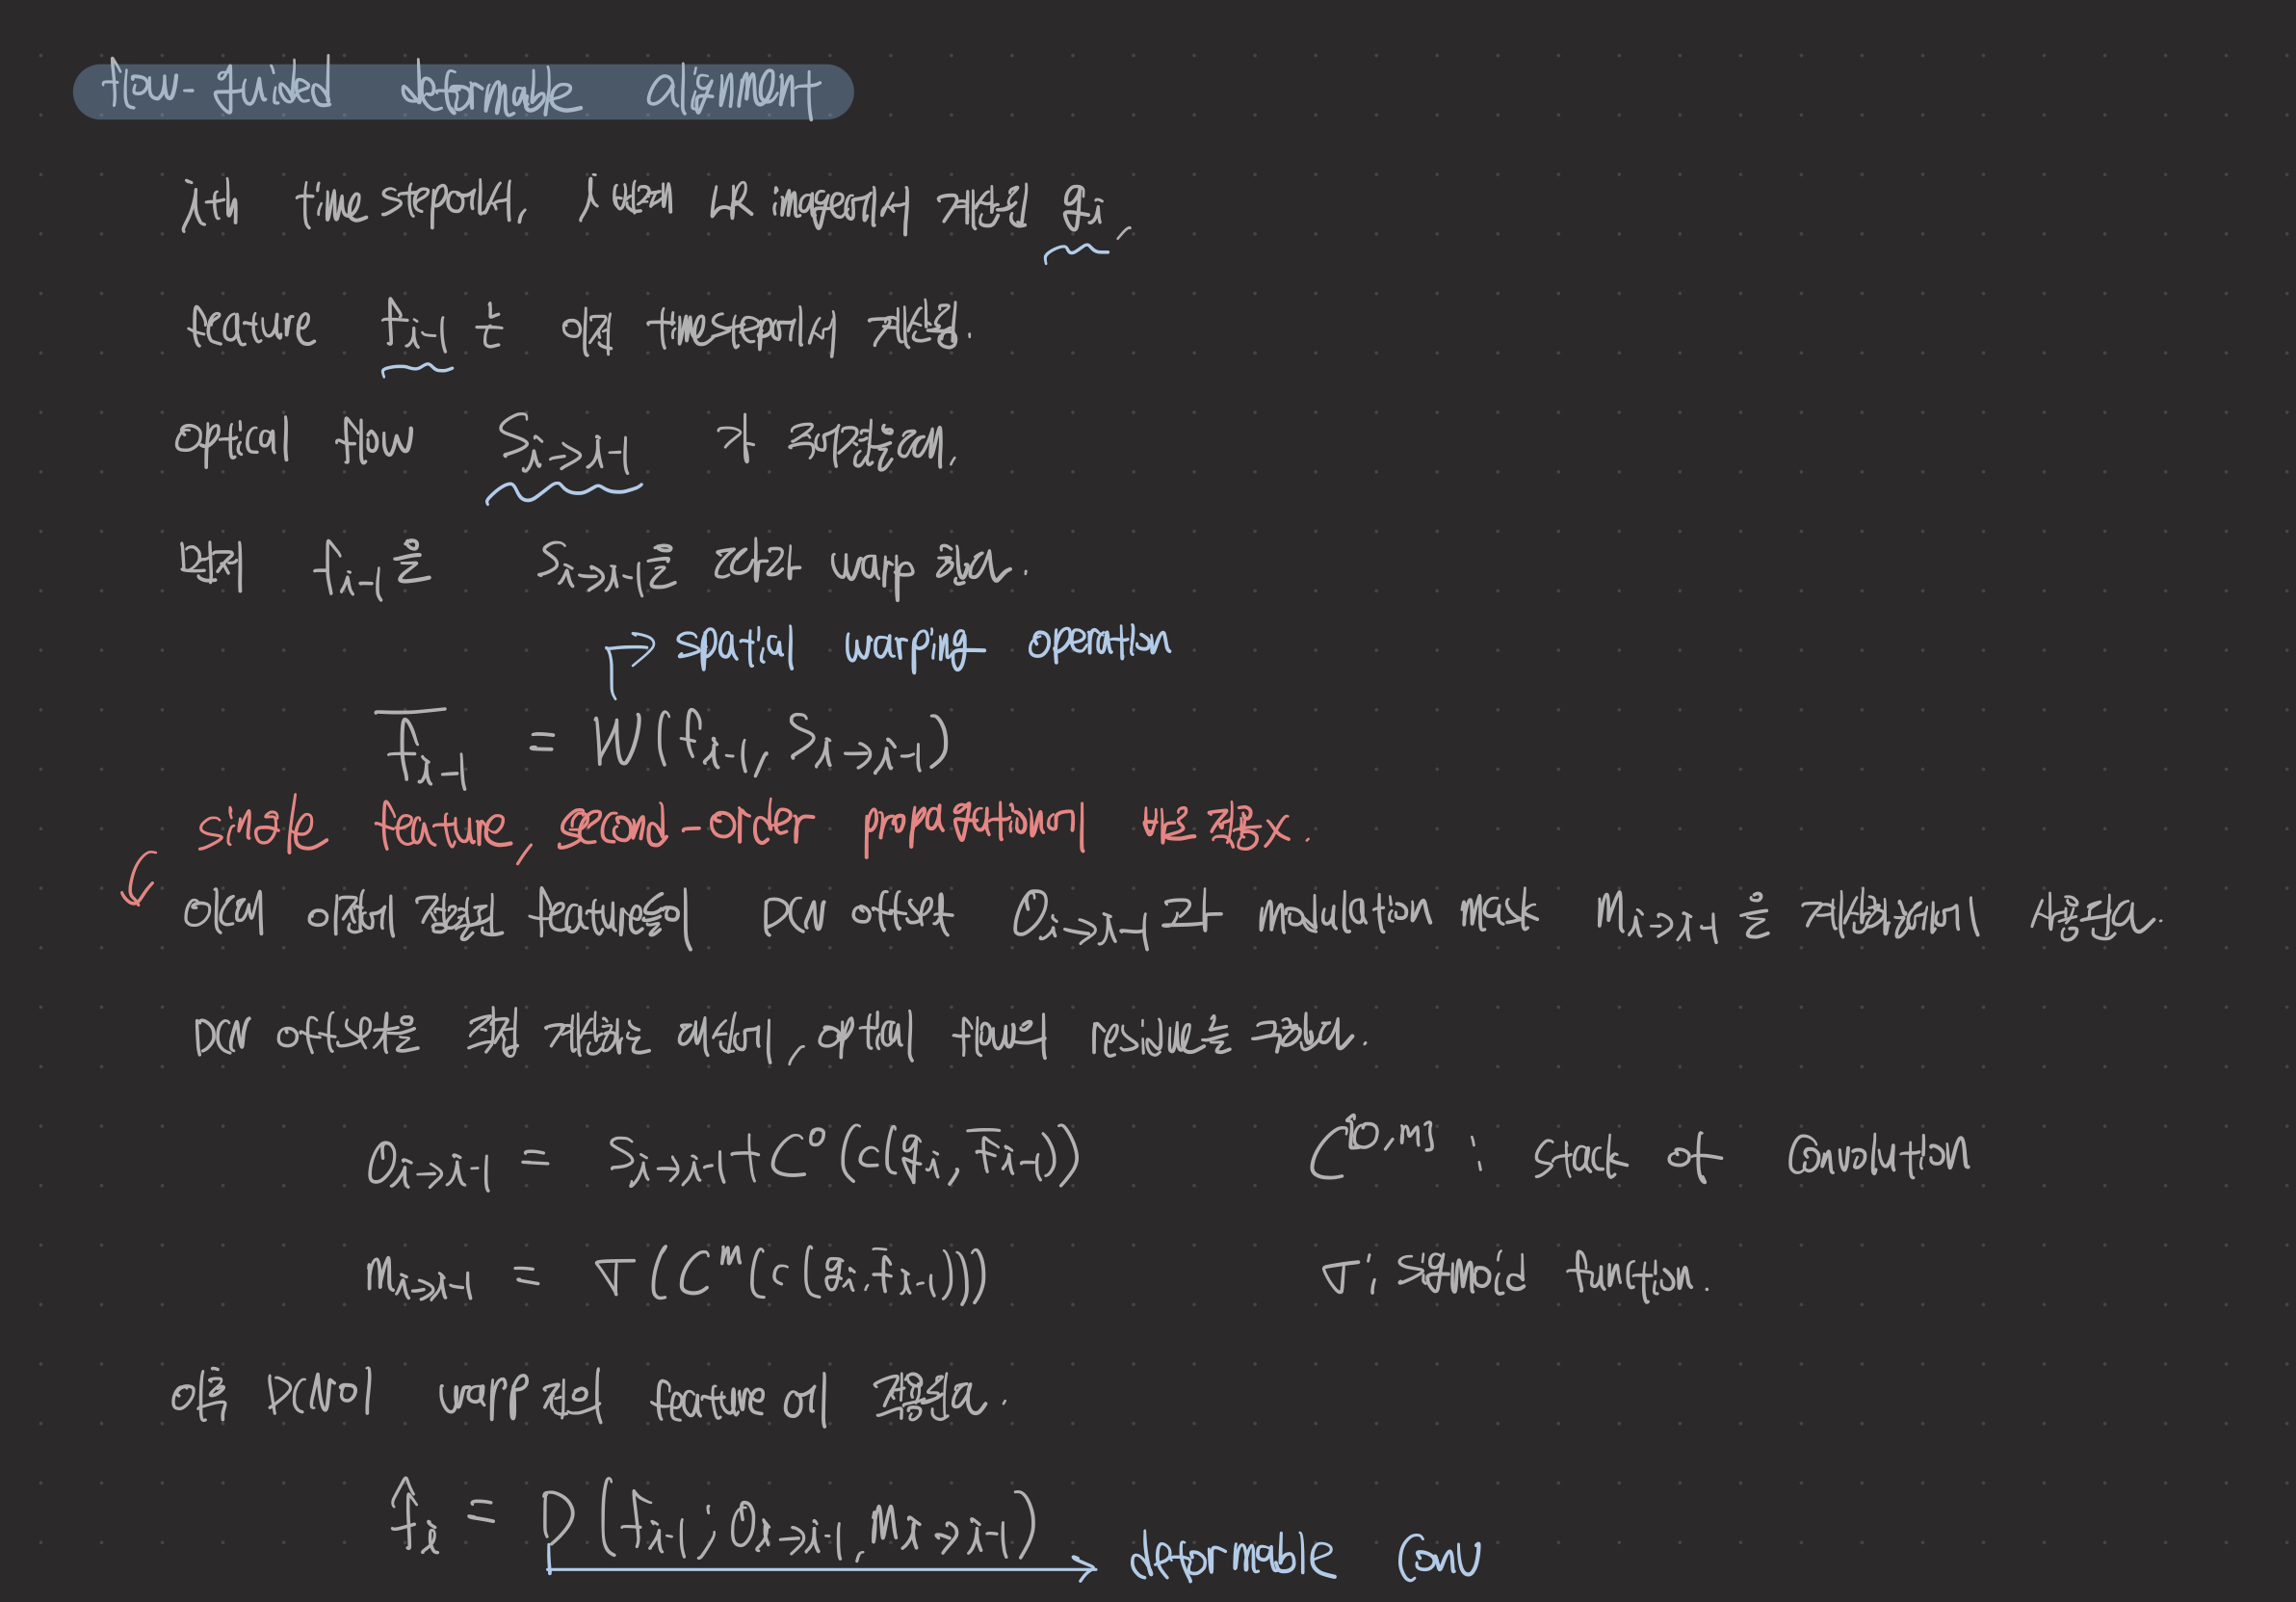 flow-guided deformable alignment
i th time step에서, i 번째 LR image에서 계산된 g_i,
feature f_{i-1} 는 이전 time step에서 계산됨.
optical flow S_{i→i-1} 가 주어졌을 때,
먼저 f_{i-1}를 S_{i→i-1}로 따라 warp 한다.
→ spatial warping operation
\bar{f}_{i-1} = W(f_{i-1}, S_{i→i-1})
single feature, second-order propagation에 바로 적용 x.
이래서 이전에 정렬된 feature들이 DCN offset O_{i→i-1}과 modulation mask m_{i→i-1}를 계산하는데에 사용된다.
DCN offset을 직접 계산하는 대신에, optical flow의 residue를 구한다.
O_{i→i-1} = S_{i→i-1} + C^o(c(g_i, \bar{f}_{i-1}))
C^{\{o,m\}} : stack of Convolution
m_{i→i-1} = σ(C^m(c(g_i, \bar{f}_{i-1})))
σ : sigmoid function.
이후 DCN이 warp 전의 feature에 적용된다.
\hat{f}_i = D(f_{i-1}; O_{i→i-1}, m_{i→i-1})
→ deformable conv